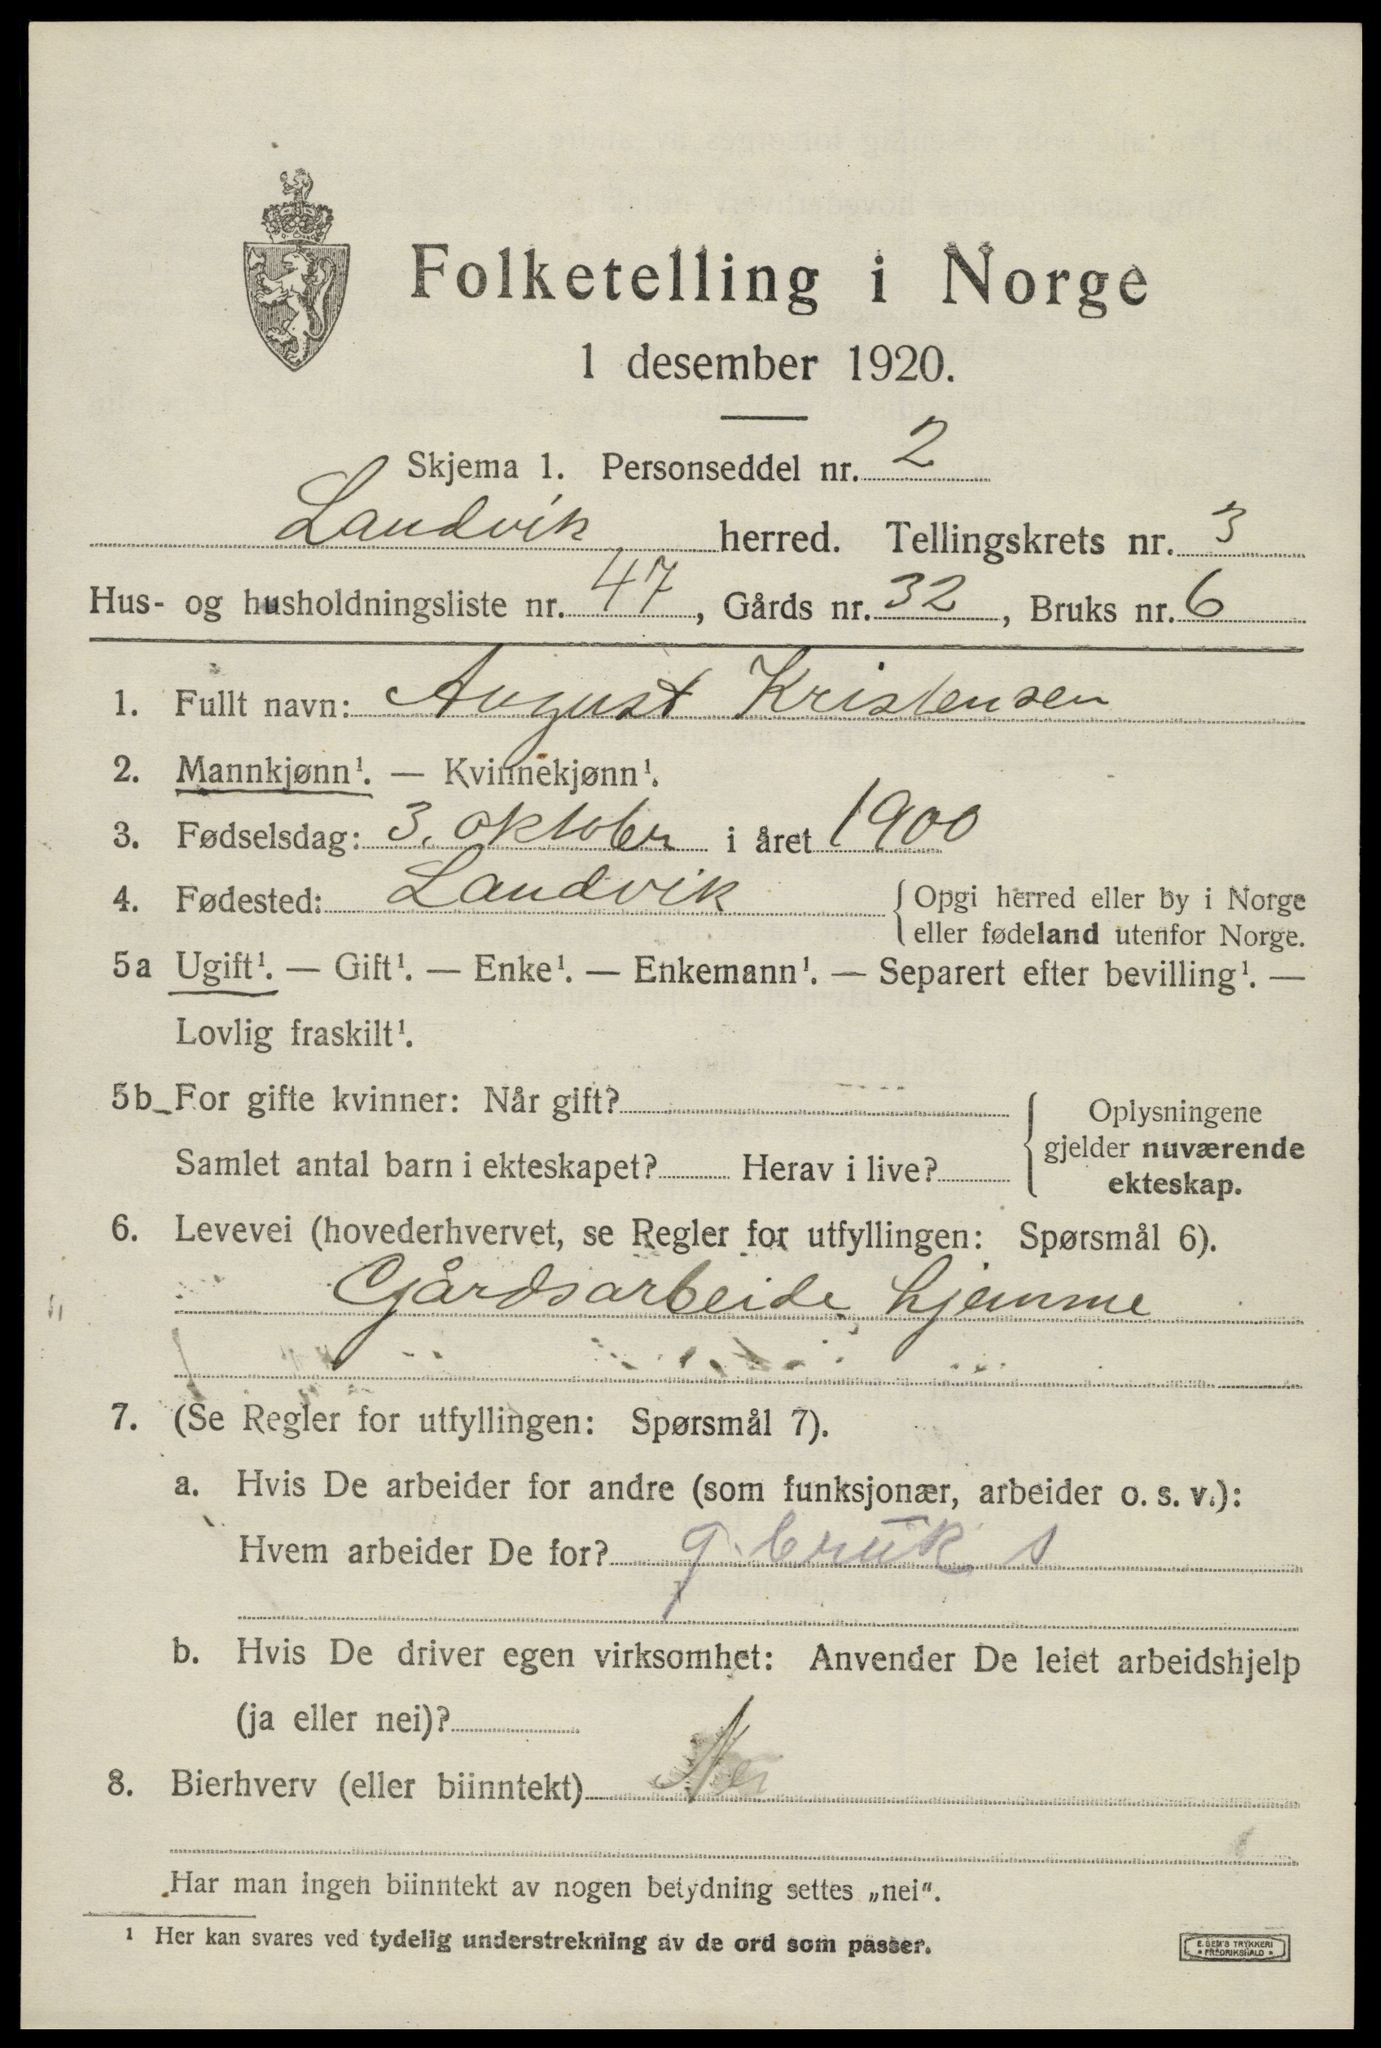 Folketelling i Norge
1 desember 1920.
Skjema 1. Personseddel nr. 2
Landvik herred. Tellingskrets nr. 3
Hus- og husholdningsliste nr. 47, Gårds nr. 32, Bruks nr. 6
1. Fullt navn: August Kristensen
2. Mannkjønn¹. — Kvinnekjønn¹.
3. Fødselsdag: 3. oktober i året 1900
4. Fødested: Landvik { Opgi herred eller by i Norge
eller fødeland utenfor Norge.
5a Ugift¹. — Gift¹. — Enke¹. — Enkemann¹. — Separert efter bevilling¹. —
Lovlig fraskilt¹.
5b For gifte kvinner: Når gift?
Samlet antal barn i ekteskapet? Herav i live?
{ Oplysningene
gjelder nuværende
ekteskap.
6. Levevei (hovederhvervet, se Regler for utfyllingen: Spørsmål 6).
Gårdsarbeide hjemme
7. (Se Regler for utfyllingen: Spørsmål 7).
a. Hvis De arbeider for andre (som funksjonær, arbeider o. s. v.):
Hvem arbeider De for? g. bruk s
b. Hvis De driver egen virksomhet: Anvender De leiet arbeidshjelp
(ja eller nei)?
8. Bierhverv (eller biinntekt) Nei
Har man ingen biinntekt av nogen betydning settes „nei“.
¹ Her kan svares ved tydelig understrekning av de ord som passer.
E. SEM'S TRYKKERI
FREDRIKSHALD